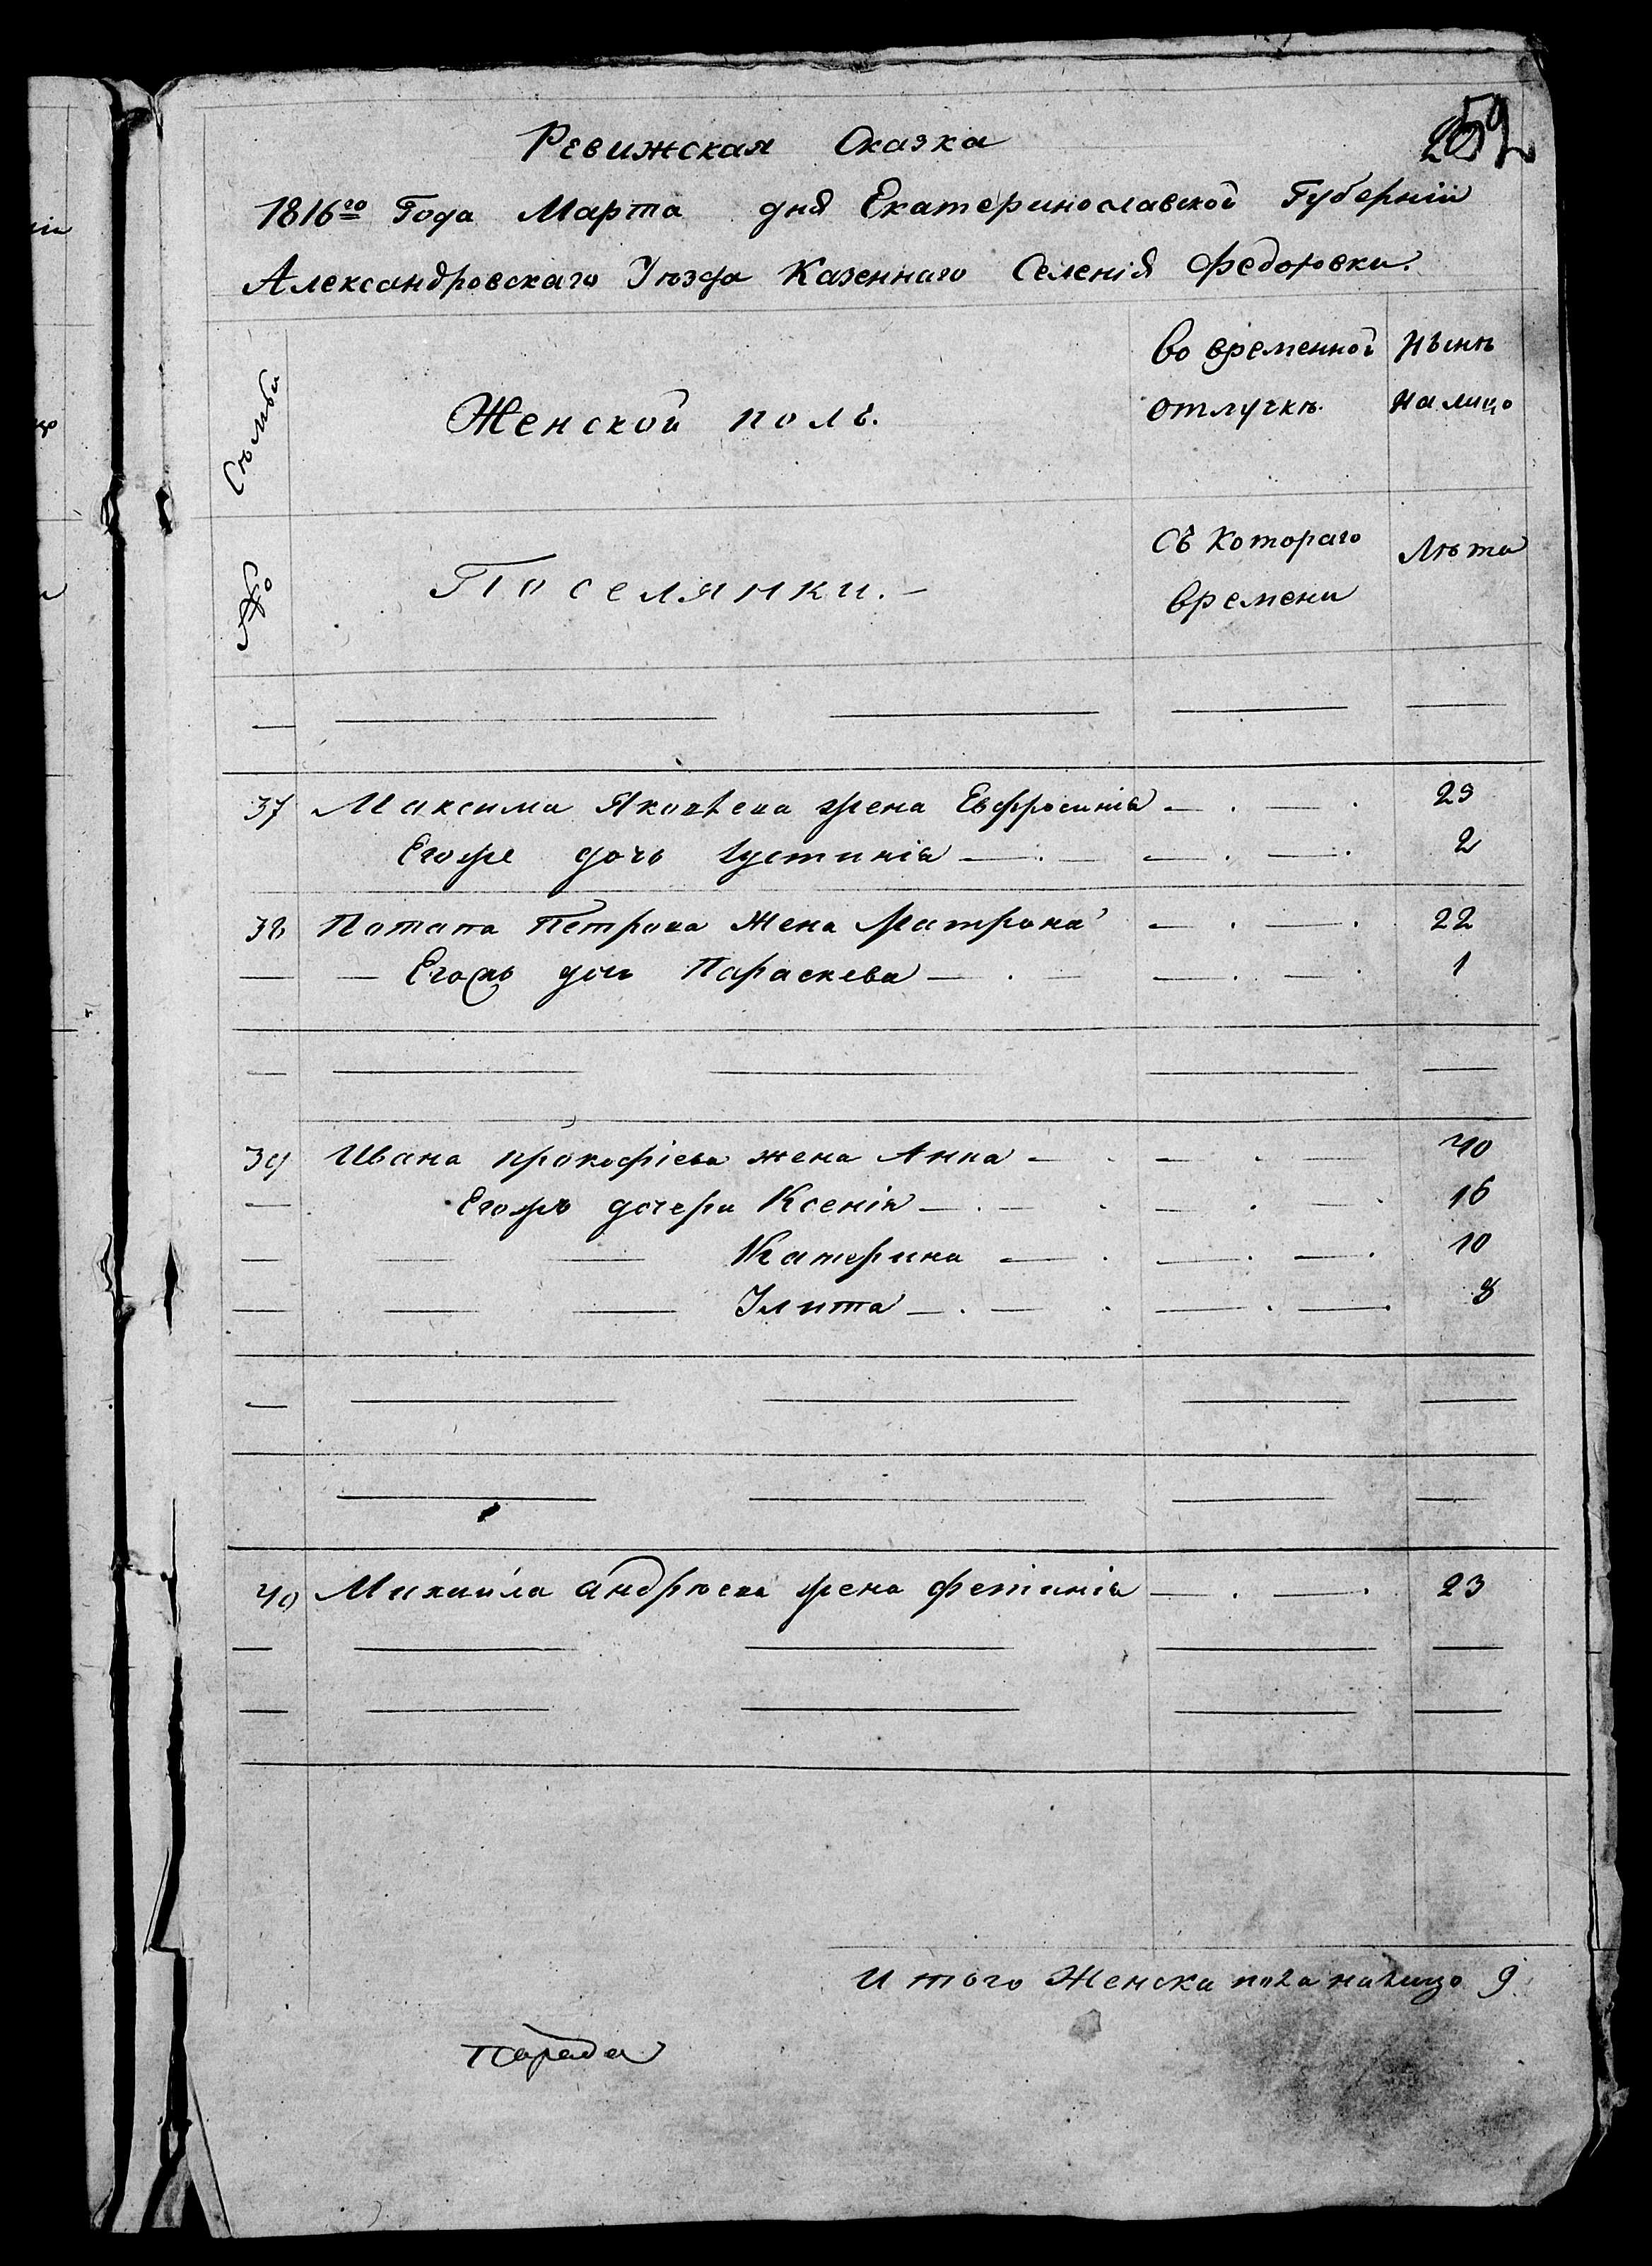 259
Ревижская Сказка
1816го Года Марта дня Екатеринославской Губерніи
Александровскаго Уѣзда Казеннаго Селенія Федоровки.
Сѣмьи
Женской полъ.
во временной отлучкѣ.
Нынѣ на лицо
№
Поселянки.
Съ Котораго времени
Лѣта
37 Максима Яковлева жена Евфросинія 23
Егоже дочь Устинія 2
38 Потапа Петрова Жена Матрона 22
Егожъ дочь Параскева 1
39 Ивана прокофіева жена Анна 40
Егожъ дочери Ксенія 16
Катерина 10
Улита 8
40 Михайла андрѣева жена фетинія 23
Итого Женска пола налицо 9